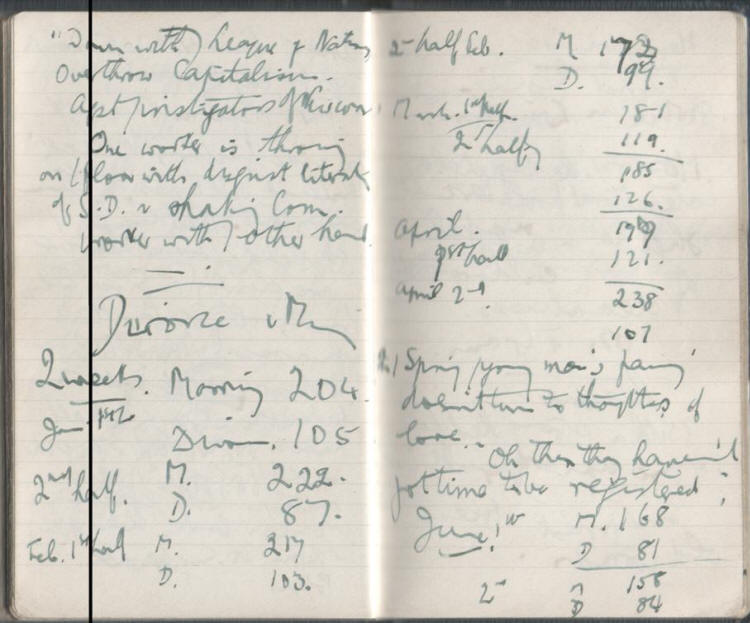 "Down with League of Nations
Overthrow Capitalism.
Agst instigators of new war
One worker is throwing
on floor with disgust literat
of S.D. & shaking Com.
worker with other hand.
Divorce & M
2 weeks. Marriag 204.
Jan 1st 1/2
Divorc. 105
2nd half. M. 222.
D. 87.
Feb. 1st half M. 217
D. 103.
2nd half Feb. M 173
D. 99.
March. 1st half. 181
2nd half 119.
185
126.
April. 199
1st half 121.
April 2nd 238
107
Spring young man's fancy
doesn't turn to thoughts of
love.
Oh then they haven't
got time to be registered
June 1st M. 168
D 81
2nd M 158
D 84